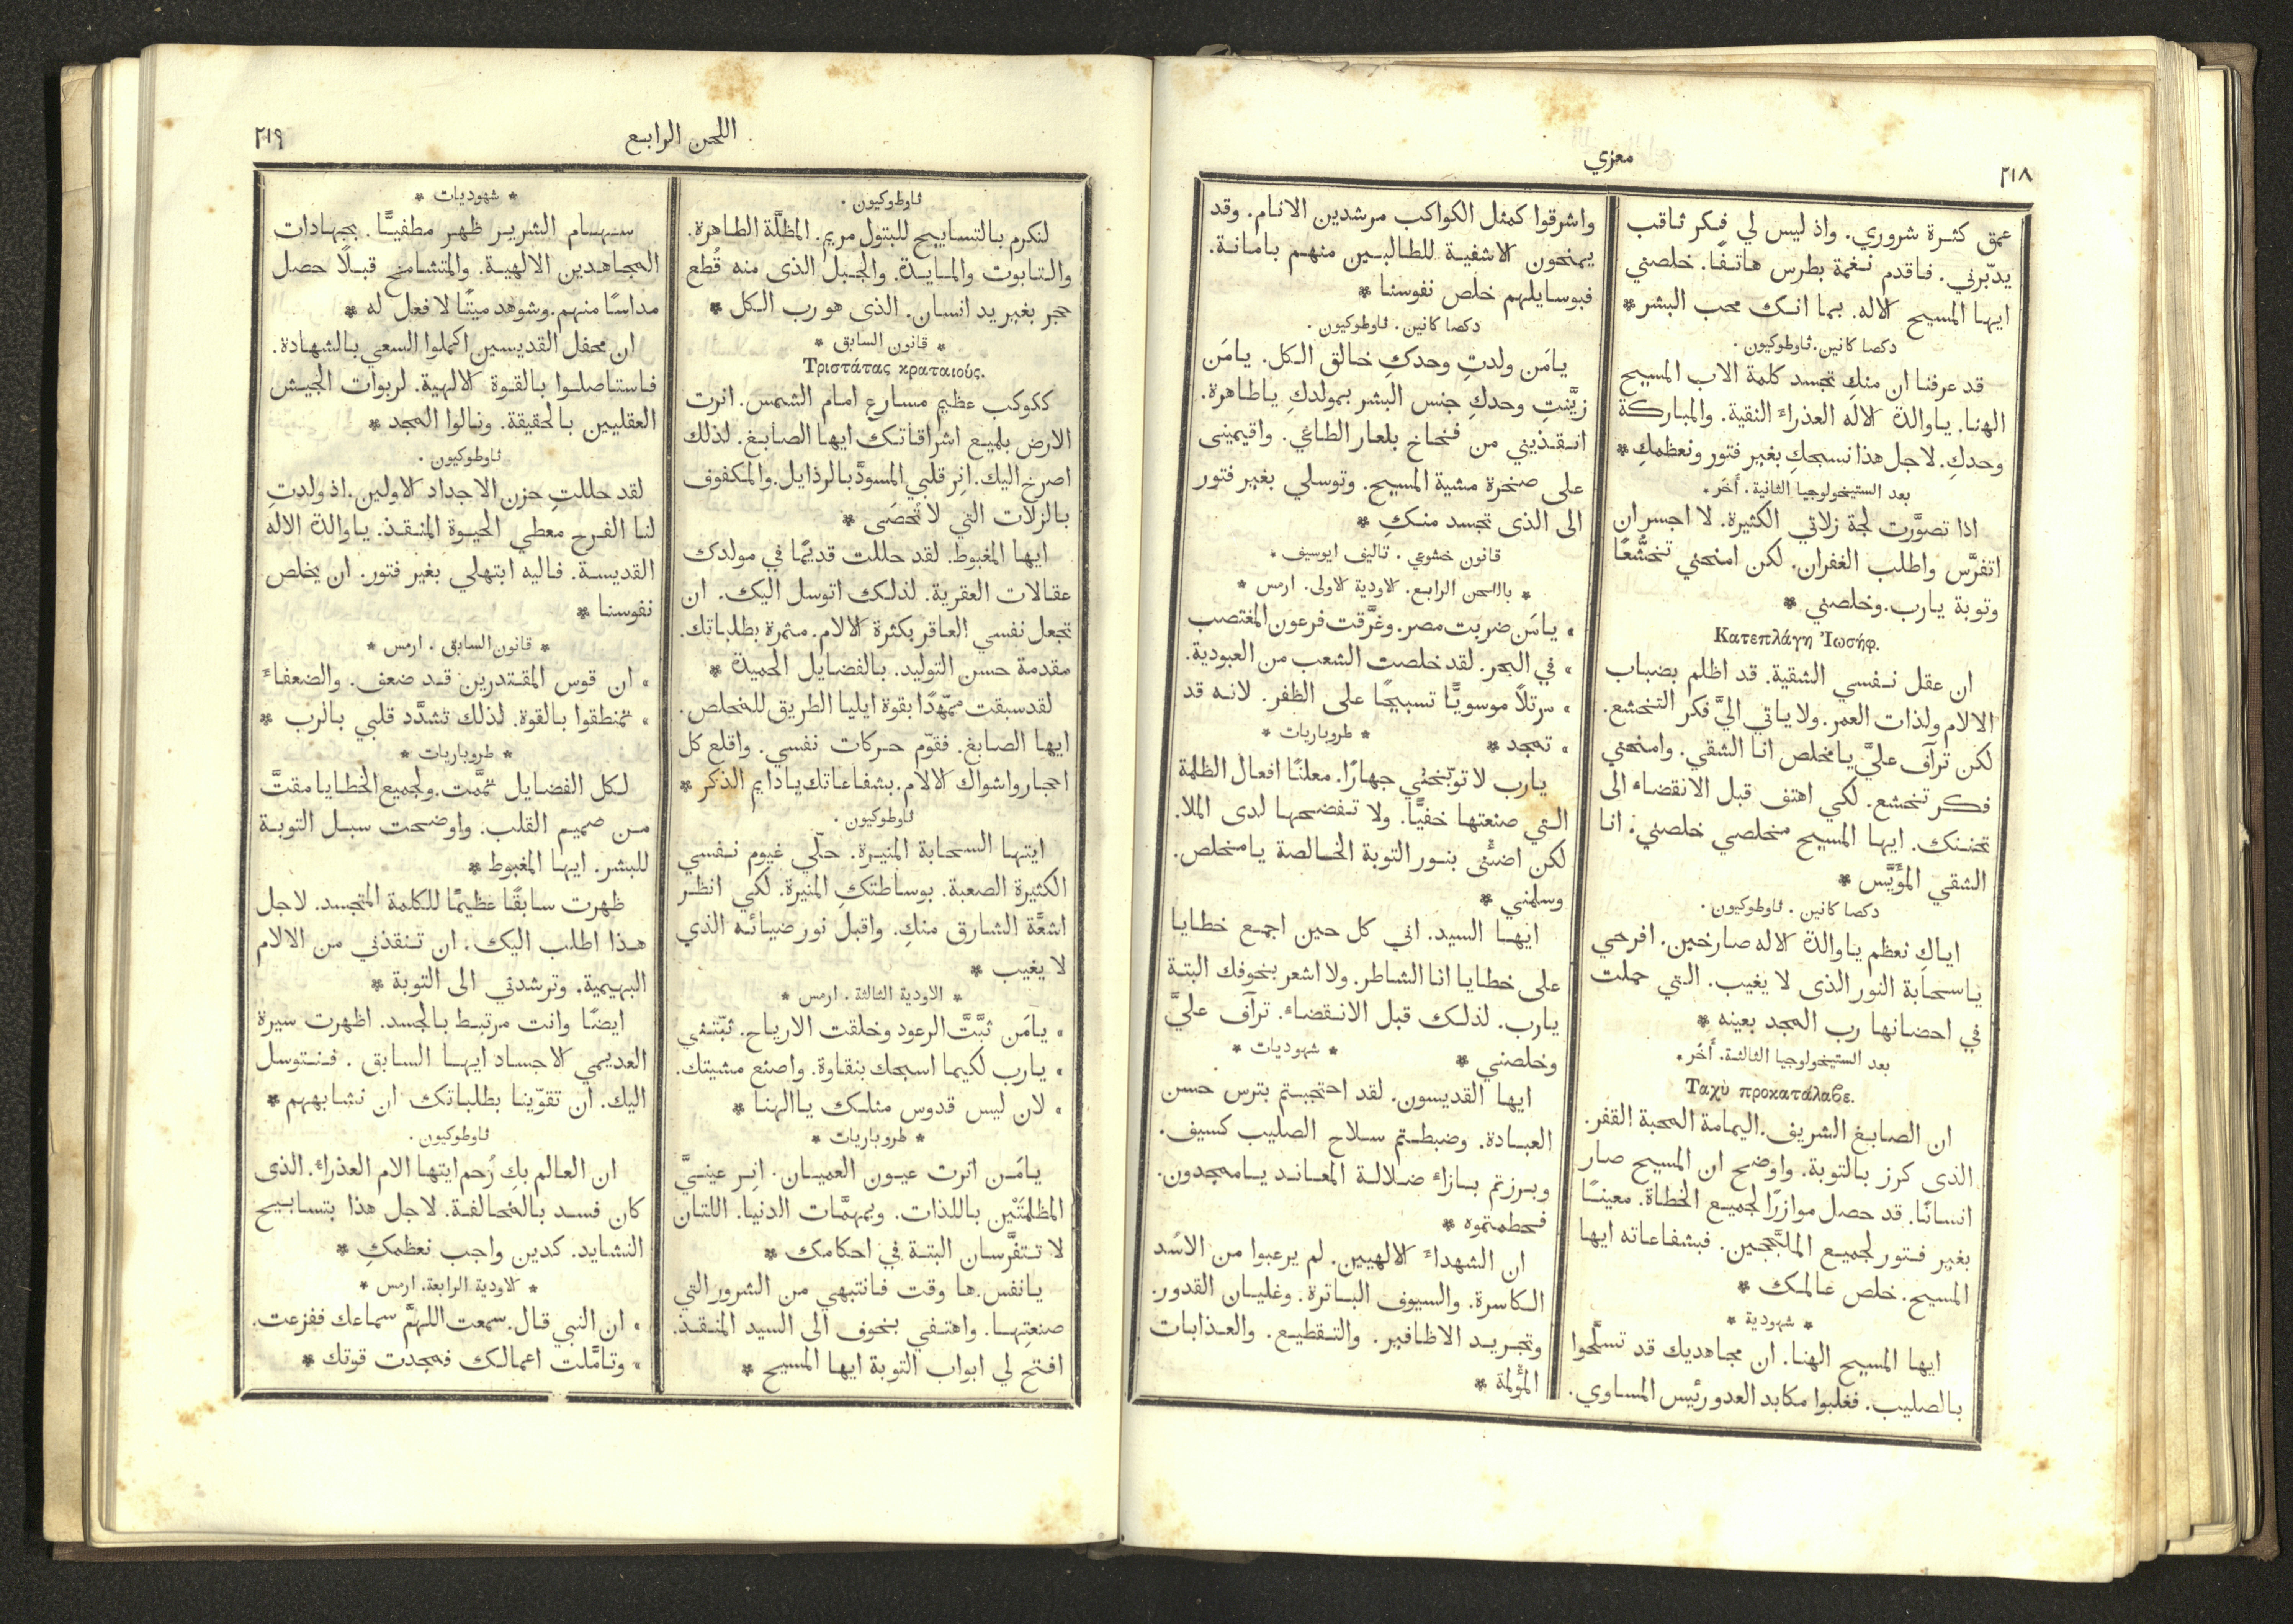 ٢١٨
معزي
عمق كثرة شروري. واذ ليس لي فكر ثاقب
يدّبرني. فاقدم نغمة بطرس هاتفًا. خلصني
ايها المسيح الاله. بما انك محب البشر *
دكصا كانين. ثاوطوكيون.
قد عرفنا ان منكِ تجسد كلمة الاب المسيح
الهنا. ياوالدة الاله العذراء النقية. والمباركة
وحدكِ. لاجل هذا نسبحكِ بغير فتور ونعظمكِ *
بعد الستيخولوجيا الثانية. أخَر.
اذا تصوَّرت لجة زلاتي الكثيرة. لا اجسر ان
اتفرَّس واطلب الغفران. لكن امنحني تخشُّعًا
وتوبة يارب. وخلصني *
Κατεπλάγη Ἰωσήφ.
ان عقل نفسي الشقية. قد اظلم بضباب
الالام ولذات العمر. ولا ياتي اليَّ فكر التخشع.
لكن ترآف عليَّ يامخلص انا الشقي. وامنحني
فكر تخشع. لكي اهتف قبل الانقضاء الى
تحننك. ايها المسيح مخلصي خلصني. انا
الشقي المؤَيَّس *
دكصا كانين. ثاوطوكيون.
اياكِ نعظم ياوالدة الاله صارخين. افرحي
ياسحابة النور الذى لا يغيب. التي حملت
في احضانها رب المجد بعينه *
بعد الستيخولوجيا الثالثة. أخَر.
Ταχὺ προκατάλαβε.
ان الصابغ الشريف. اليمامة المحبة القفر.
الذى كرز بالتوبة. واوضح ان المسيح صار
انسانًا. قد حصل موازرًا لجميع الخطاة. معينًا
بغير فتور لجميع الملجَّجين. فبشفاعاته ايها
المسيح. خلص عالمك *
* شهودية *
ايها المسيح الهنا. ان مجاهديك قد تسلَّحوا
بالصليب. فغلبوا مكايد العدو رئيس المساوي.
واشرقوا كمثل الكواكب مرشدين الانام. وقد
يمنحون الاشفية للطالبين منهم بامانة.
فبوسايلهم خلص نفوسنا *
دكصا كانين. ثاوطوكيون.
يامَن ولدتِ وحدكِ خالق الكل. يامَن
زيَّنتِ وحدكِ جنس البشر بمولدكِ ياطاهرة.
انقذيني من فخاخ بلعار الطاغي. واقيميني
على صخرة مشية المسيح. وتوسلي بغير فتور
الى الذى تجسد منكِ *
قانون خشوعي. تاليف ايوسيف *
* باللحن الرابع. الاودية الاولى. ارمس *
» يامَن ضربت مصر. وغرَّقت فرعون المغتصب
» في البحر. لقد خلصت الشعب من العبودية.
» مرتلًا موسويًّا تسبيحًا على الظفر. لانه قد
» تمجد *
* طروباريات *
يارب لا توبّخني جهارًا. معلنًا افعال الظلمة
التي صنعتها خفيًّا. ولا تفضحها لدى الملا.
لكن اضئني بنور التوبة الخالصة يامخلص.
وسلمني *
ايها السيد. اني كل حين اجمع خطايا
على خطايا انا الشاطر. ولا اشعر بخوفك البتة
يارب. لذلك قبل الانقضاء. ترآف عليَّ
وخلصني *
* شهوديات *
ايها القديسون. لقد احتجبتم بترس حسن
العبادة. وضبطتم سلاح الصليب كسيف.
وبرزتم بازاء ضلالة المعاند يامجدون.
فحطمتموه *
ان الشهداء الالهيين. لم يرعبوا من الاسُد
الكاسرة. والسيوف الباترة. وغليان القدور.
وتجريد الاظافير. والتقطيع. والعذابات
المؤلمة *
اللحن الرابع
٢١٩
ثاوطوكيون.
لنكرم بالتسابيح للبتول مريم. المظلَّة الطاهرة.
والتابوت والمايدة. والجبل الذى منه قُطع
حجر بغير يد انسان. الذى هو رب الكل *
* قانون السابق *
Τριστάτας κραταιούς.
ككوكب عظيم مسارع امام الشمس. انرت
الارض بلميع اشراقاتك ايها الصابغ. لذلك
اصرخ اليك. انِر قلبي المسودَّ بالرذايل. والمكفوف
بالزلات التي لا تُحصَى *
ايها المغبوط. لقد حللت قديمًا في مولدك
عقالات العقرية. لذلك اتوسل اليك. ان
تجعل نفسي العاقر بكثرة الالام. مثمرة بطلباتك.
مقدمة حسن التوليد. بالفضايل الحميدة *
لقد سبقت ممّهدًا بقوة ايليا الطريق للمخلص.
ايها الصابغ. فقوّم حركات نفسي. واقلع كل
احجار واشواك الالام. بشفاعاتك يادايم الذكر *
ثاوطوكيون.
ايتها السحابة المنيرة. حلّي غيوم نفسي
الكثيرة الصعبة. بوساطتكِ المنيرة. لكي انظر
اشعَّة الشارق منكِ. واقبل نور ضيائه الذي
لا يغيب *
* الاودية الثالثة. ارمس *
» يامَن ثبَّتَّ الرعود وخلقت الارياح. ثبّتني
» يارب لكيما اسبحك بنقاوة. واصنع مشيتك.
» لان ليس قدوس مثلك ياالهنا *
* طروباريات *
يامَن انرت عيون العميان. انِر عينيَّ
المظلمَتَيْن باللذات. وبمهمَّات الدنيا. اللتان
لا تتفرَّسان البتة في احكامك *
يانفس. ها وقت فانتبهي من الشرور التي
صنعتِها. واهتفي بخوف الى السيد المنقذ.
افتح لي ابواب التوبة ايها المسيح *
* شهوديات *
سهام الشرير ظهر مطفيًّا. بجهادات
المجاهدين الالهية. والمتشامخ قبلًا حصل
مداسًا منهم. وشوهد ميتًا لا فعل له *
ان محفل القديسين اكملوا السعي بالشهادة.
فاستاصلوا بالقوة الالهية. لربوات الجيش
العقليين بالحقيقة. ونالوا المجد *
ثاوطوكيون.
لقد حللتِ حزن الاجداد الاولين. اذ ولدتِ
لنا الفرح معطي الحيوة المنقذ. ياوالدة الاله
القديسة. فاليه ابتهلي بغير فتور. ان يخلص
نفوسنا *
* قانون السابق. ارمس *
» ان قوس المقتدرين قد ضعف. والضعفاء
» تمنطقوا بالقوة. لذلك تشدَّد قلبي بالرب *
* طروباريات *
لكل الفضايل تمَّمت. ولجميع الخطايا مقتَّ
من صميم القلب. واوضحت سبل التوبة
للبشر. ايها المغبوط *
ظهرت سابقًا عظيمًا للكلمة المتجسد. لاجل
هذا اطلب اليك. ان تنقذني من الالام
البهيمية. وترشدني الى التوبة *
ايضًا وانت مرتبط بالجسد. اظهرت سيرة
العديمي الاجساد ايها السابق. فنتوسل
اليك. ان تقوّينا بطلباتك ان نشابههم *
ثاوطوكيون.
ان العالم بك رُحم ايتها الام العذراء. الذى
كان فسد بالمخالفة. لاجل هذا بتسابيح
النشايد. كدين واجب نعظمكِ *
* الاودية الرابعة. ارمس *
» ان النبي قال. سمعت اللهمَّ سماعك ففزعت.
» وتامَّلت اعمالك فمجدت قوتك *